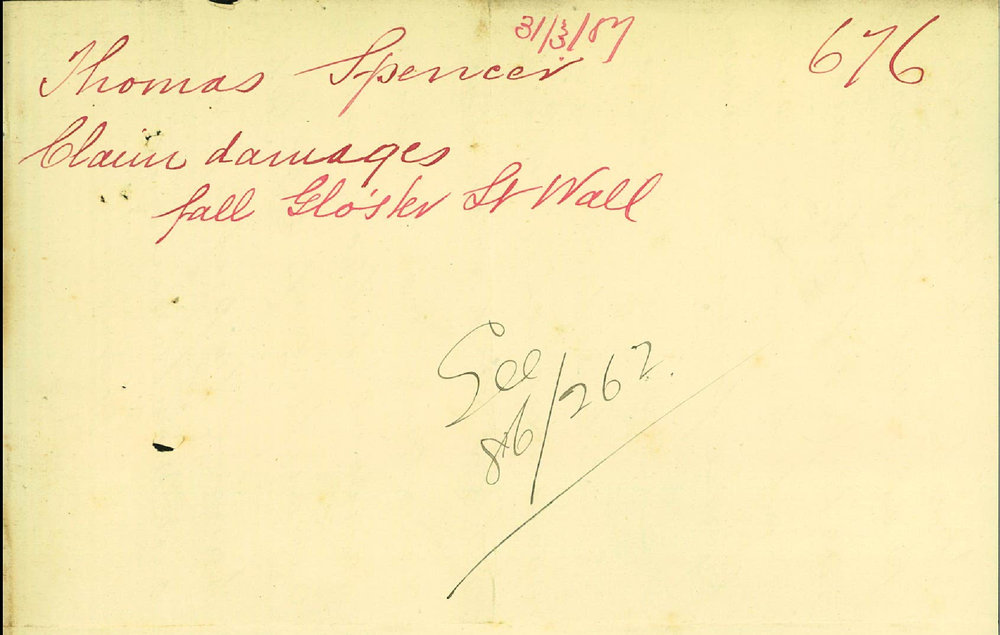 31/3/87
Thomas Spencer 676
Claim damages
fall Glo'ster St Wall
See
86/262.